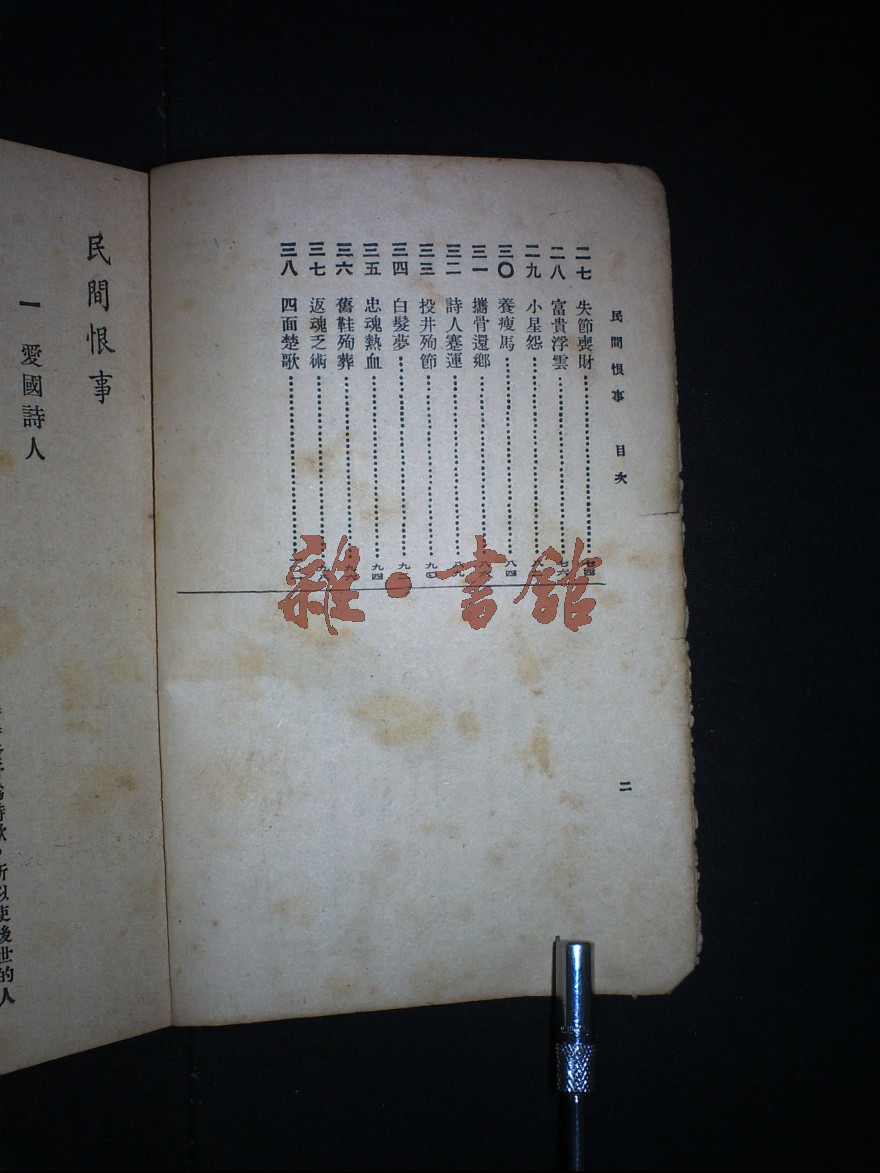 民間恨事 目次
二七 失節喪財 七四
二八 富貴浮雲 七六
二九 小星怨
三〇 養瘦馬 八四
三一 攜骨還鄉 八六
三二 詩人蹇運 八九
三三 投井殉節 九〇
三四 白髮夢 九二
三五 忠魂熱血 九四
三六 舊鞋殉葬
三七 返魂乏術
三八 四面楚歌
二
民間恨事
一 愛國詩人
詩歌，所以使後世的人
雜·書館